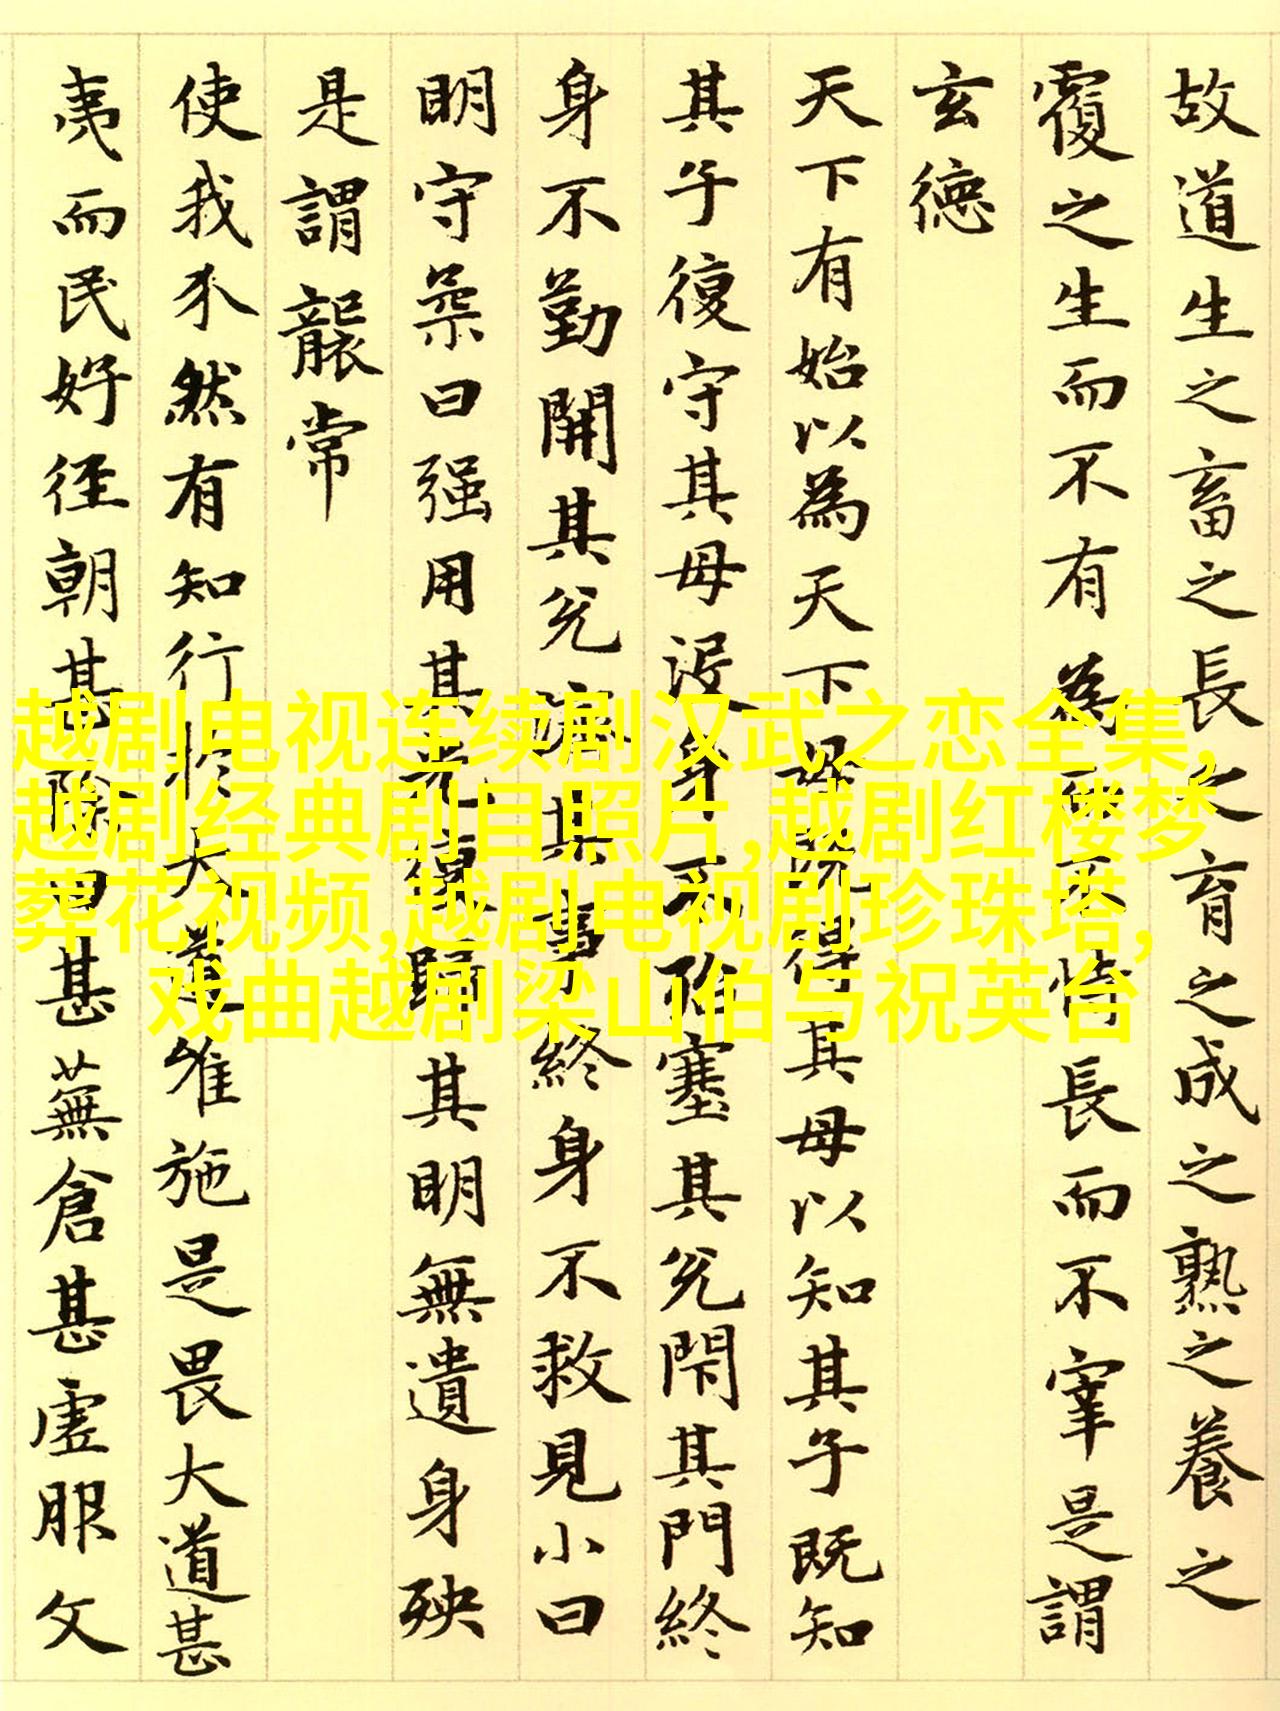 故道生之畜之長之育之成之熟之養之
覆之生而不有為而不恃長而不宰是謂
玄德
天下有始以為天下母既得其母以知其子既知
其子復守其母沒身不殆塞其兊閇其門終
身不勤開其兊濟其事終身不救見小曰
明守柔曰强用其光復歸其明無遺身殃
是謂襲常
使我介然有知行於大道唯施是畏大道甚
夷而民好徑朝甚除田甚蕪倉甚虛服文
越剧电视连续剧汉武之恋全集,
越剧经典剧目照片,越剧红楼梦
葬花视频,越剧电视剧珍珠塔,
戏曲越剧梁山伯与祝英台